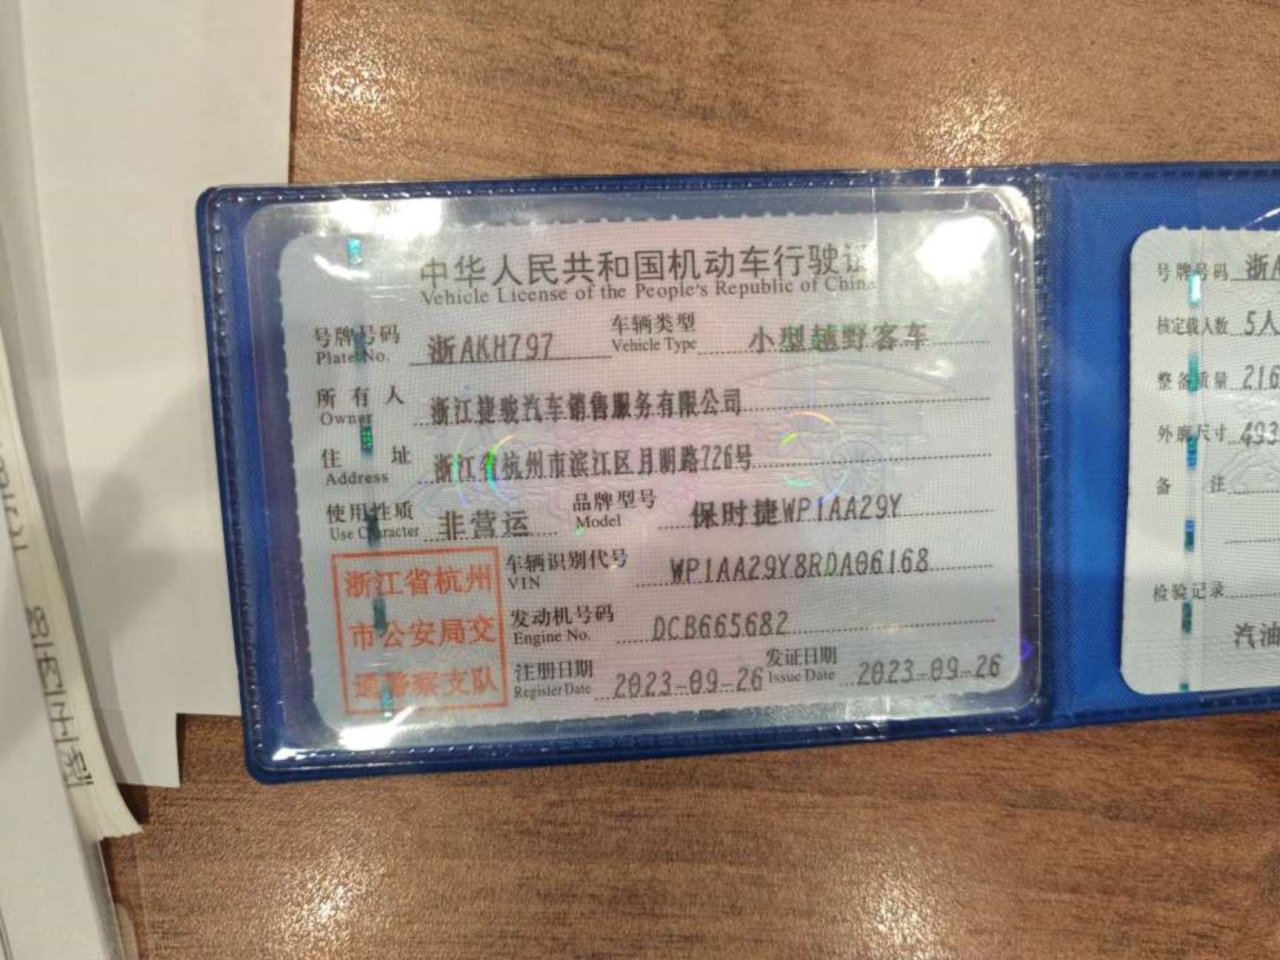 中华人民共和国机动车行驶证
Vehicle License of the People's Republic of China
号牌号码 浙AKH797 车辆类型 小型越野客车
Plate No. Vehicle Type
所有人 浙江捷骏汽车销售服务有限公司
Owner
住址 浙江省杭州市滨江区月明路726号
Address
使用性质 非营运 品牌型号 保时捷WP1AA29Y
Use Character Model
浙江省杭州
市公安局交
通警察支队
车辆识别代号 WP1AA29Y8RDA06168
VIN
发动机号码 DCB665682
Engine No.
注册日期 2023-09-26 发证日期 2023-09-26
Register Date Issue Date
号牌号码 浙A
核定载人数 5人
整备质量 216
外廓尺寸 493
备注
检验记录
汽油